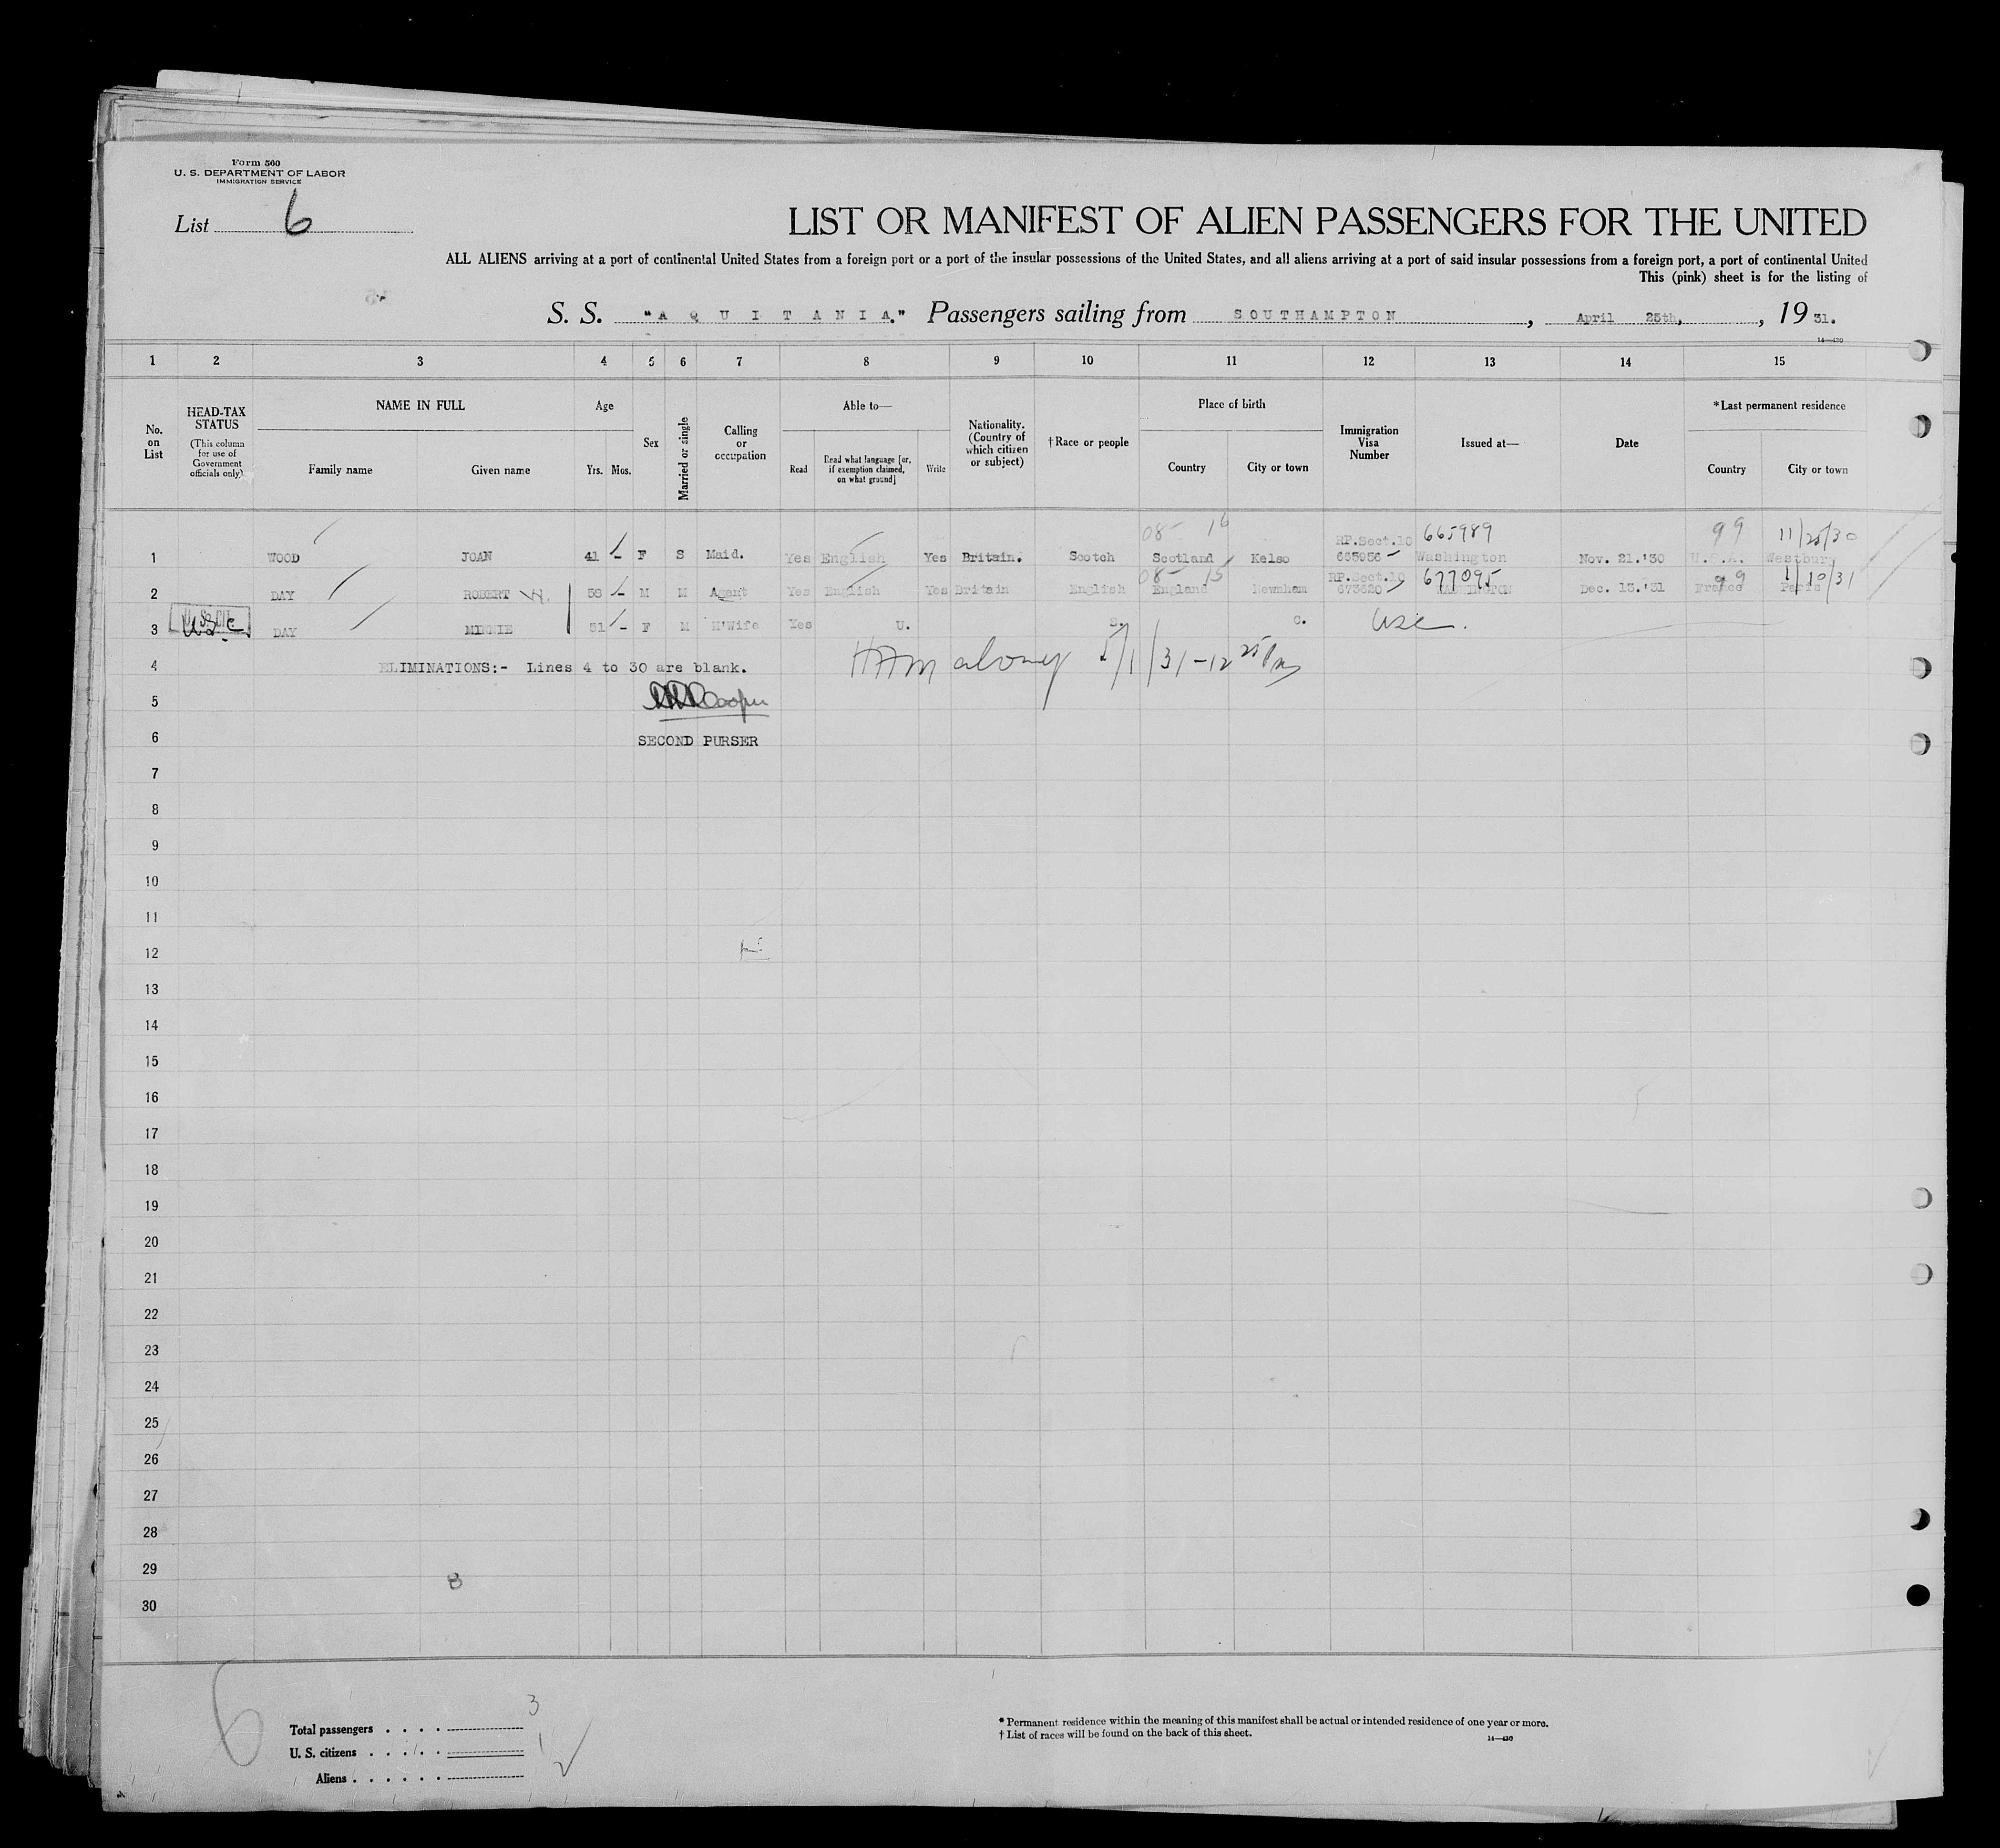 Form 500
U. S. DEPARTMENT OF LABOR
IMMIGRATION SERVICE
List 6
LIST OR MANIFEST OF ALIEN PASSENGERS FOR THE UNITED
ALL ALIENS arriving at a port of continental United States from a foreign port or a port of the insular possessions of the United States, and all aliens arriving at a port of said insular possessions from a foreign port, a port of continental United
This (pink) sheet is for the listing of
S. S. "AQUITANIA." Passengers sailing from SOUTHAMPTON, April 25th, , 19 31.
14—430
1 2 3 4 5 6 7 8 9 10 11 12 13 14 15
No. on List
HEAD-TAX STATUS (This column for use of Government officials only)
NAME IN FULL
Family name Given name
Age
Yrs. Mos.
Sex
Married or single
Calling or occupation
Able to—
Read Read what language [or, if exemption claimed, on what ground] Write
Nationality. (Country of which citizen or subject)
† Race or people
Place of birth
Country City or town
Immigration Visa Number
Issued at—
Date
*Last permanent residence
Country City or town
08- 16 RP.Sect.10 665989 99 11/25/30
1 WOOD JOAN 41 - F S Maid. Yes English Yes Britain. Scotch Scotland Kelso 665956 Washington Nov. 21.'30 U.S.A. Westbury
08- 15 RP.Sect.10 677095 99 1/10/31
2 DAY ROBERT W. 56 - M M Agent Yes English Yes Britain English England Newnham 673620 WASHINGTON Dec. 13.'31 France Paris
3 USC DAY MINNIE 51 - F M H'Wife Yes U. S. C. USC.
4 ELIMINATIONS:- Lines 4 to 30 are blank. 5/1/31-12 25 Pm
5 Cooper
6 SECOND PURSER
7
8
9
10
11
12
13
14
15
16
17
18
19
20
21
22
23
24
25
26
27
28
29
8
30
6
Total passengers . . . . 3
U. S. citizens . . . . 1
Aliens . . . . . .
* Permanent residence within the meaning of this manifest shall be actual or intended residence of one year or more.
† List of races will be found on the back of this sheet.
14—430